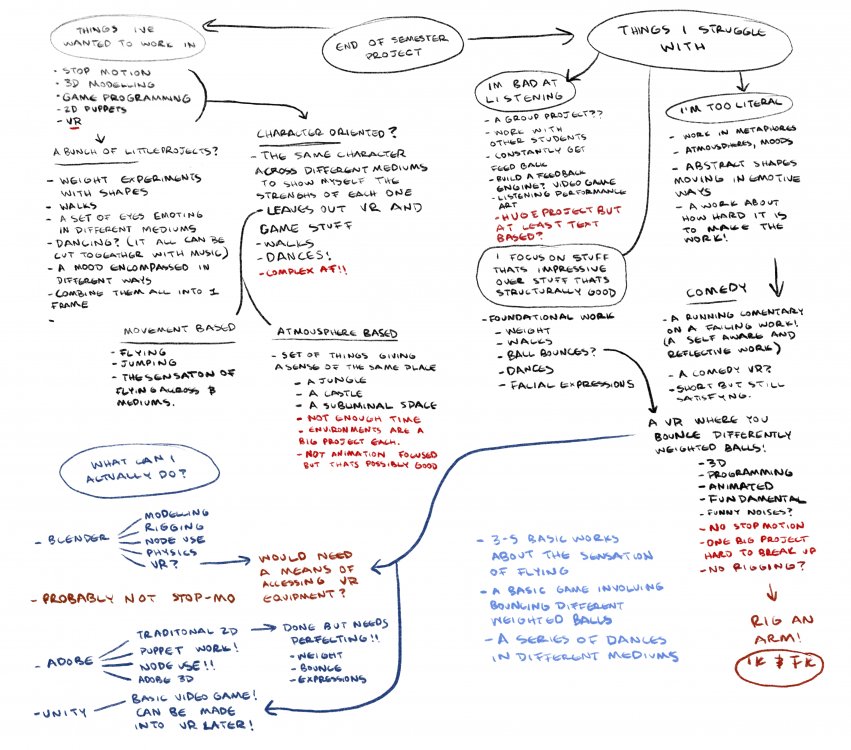 THINGS IVE
WANTED TO WORK IN
END OF SEMESTER
PROJECT
THINGS I STRUGGLE
WITH
- STOP MOTION
- 3D MODELLING
- GAME PROGRAMMING
- 2D PUPETS
- VR
A BUNCH OF LITTLE PROJECTS?
- WEIGHT EXPERIMENTS
WITH SHAPES
- WALKS
- A SET OF EYES EMOTING
IN DIFFERENT MEDIUMS
- DANCING? (IT ALL CAN BE
CUT TOGEATHER WITH MUSIC)
- A MOOD ENCOMPASSED IN
DIFFERENT WAYS
- COMBINE THEM ALL INTO 1
FRAME
-
CHARACTER ORIENTED?
- THE SAME CHARACTER
ACROSS DIFFERENT MEDIUMS
TO SHOW MYSELF THE
STRENGHS OF EACH ONE
- LEAVES OUT VR AND
GAME STUFF
- WALKS
- DANCES!
- COMPLEX AF!!
MOVEMENT BASED
- FLYING
- JUMPING
- THE SENSATON OF
FLYING ACROSS 3
MEDIUMS.
ATMOUSPHERE BASED
- SET OF THINGS GIVING
A SENSE OF THE SAME PLACE
- A JUNGLE
- A CASTLE
- A SUBLUMINAL SPACE
- NOT ENOUGH TIME
- ENVIRONMENTS ARE A
BIG PROJECT EACH.
- NOT ANIMATION FOCUSED
BUT THATS POSSIBLY GOOD
IM BAD AT
LISTENING
- A GROUP PROJECT??
- WORK WITH
OTHER STUDENTS
- CONSTANTLY GET
FEED BACK
- BUILD A FEEDBACK
ENGINE? VIDEO GAME
- LISTENING PERFORMANCE
ART
- HUGE PROJECT BUT
AT LEAST TEXT
BASED?
I'M TOO LITERAL
- WORK IN METAPHORES
- ATMOUSPHERES, MOODS
- ABSTRACT SHAPES
MOVING IN EMOTIVE
WAYS
- A WORK ABOUT
HOW HARD IT IS
TO MAKE THE
WORK!
I FOCUS ON STUFF
THATS IMPRESSIVE
OVER STUFF THATS
STRUCTURALLY GOOD
- FOUNDATIONAL WORK
- WEIGHT
- WALKS
- BALL BOUNCES?
- DANCES
- FACIAL EXPRESSIONS
COMEDY
- A RUNNING COMENTARY
ON A FAILING WORK!
(A SELF AWARE AND
REFLECTIVE WORK)
- A COMEDY VR?
- SHORT BUT STILL
SATISFYING.
A VR WHERE YOU
BOUNCE DIFFERENTLY
WEIGHTED BALLS!
- 3D
- PROGRAMMING
- ANIMATED
- FUNDAMENTAL
- FUNNY NOISES?
- NO STOP MOTION
- ONE BIG PROJECT
HARD TO BREAK UP
- NO RIGGING?
RIG AN
ARM!
IK & FK
WHAT CAN I
ACTUALLY DO?
- BLENDER
MODELLING
RIGGING
NODE USE
PHYSICS
VR?
WOULD NEED
A MEANS OF
ACCESSING VR
EQUIPMENT?
- PROBABLY NOT STOP-MO
- ADOBE
TRADITONAL 2D
PUPPET WORK!
NODE USE!!
ADOBE 3D
DONE BUT NEEDS
PERFECTING!!
- WEIGHT
- BOUNCE
- EXPRESSIONS
- UNITY
BASIC VIDEO GAME!
CAN BE MADE
INTO VR LATER!
- 3-5 BASIC WORKS
ABOUT THE SENSATION
OF FLYING
- A BASIC GAME INVOLVING
BOUNCING DIFFERENT
WEIGHTED BALLS
- A SERIES OF DANCES
IN DIFFERENT MEDIUMS